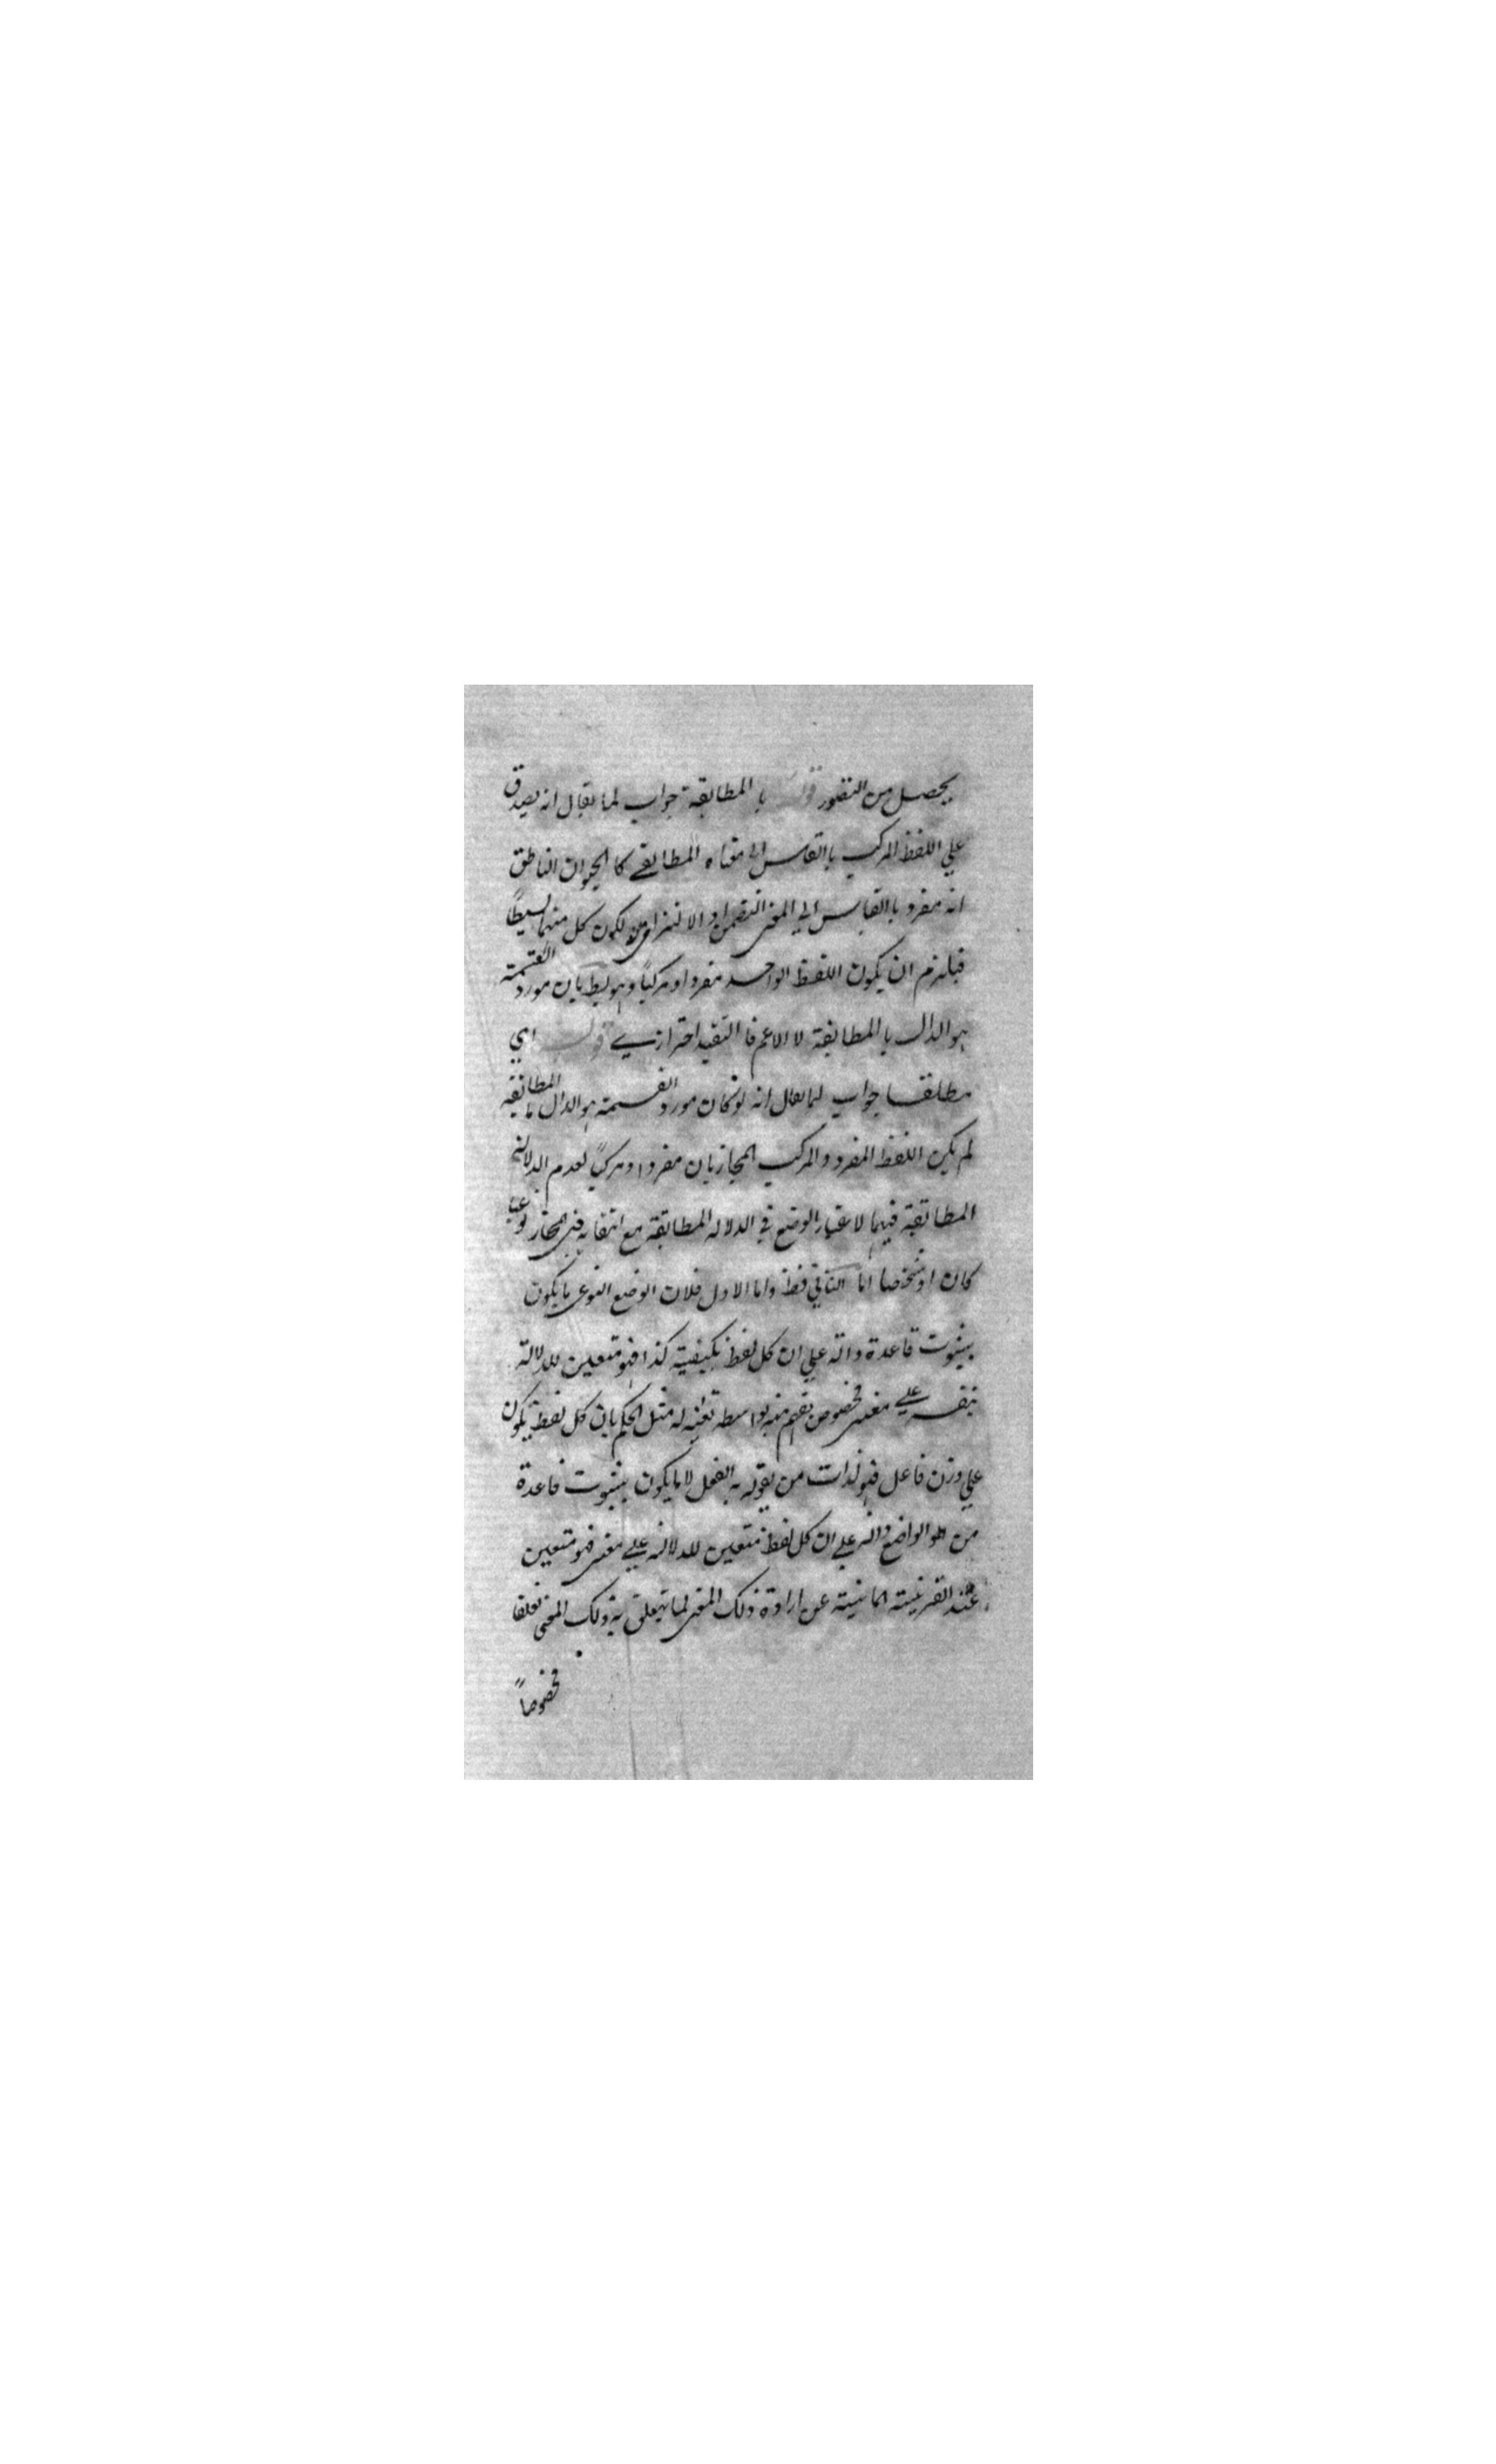 يحصل من التصور قوله بالمطابقة جواب لما يقال انه يصدق
علي اللفظ المركب باالقاس الي معناه المطابقے كا الحيوان الناطق
انه مفرد باالقاس الي المعنى التضمن او الالتزامى لكون كل منهما بسيطاً
فيلزم ان يكون اللفظ الواحد مفردا ومركباً وهو بط بان مورد القسمة
هو الدال باالمطابقة لا الاعم فا التقيد احترازے قوله اي
مطلقا جواب لما يقال انه لو كان مورد القسمة هو الدال باالمطابقة
لم يكن اللفظ المفرد والمركب المجازيان مفردا ومركباً لعدم الدلالة
المطابقة فيهما لاعتبار الوضع في الدلالة المطابقة مع انتفايه في المجاز نوعيا
كان او شخصا اما الثاني فظ واما الاول فلان الوضع النوعى ما يكون
بثبوت قاعدة دالة علي ان كل لفظ بكيفية كذا فهو متعين للدلالة
بنفسه علے معنى مخصوص يفهم منه بواسطة تعينه له مثل الحكم بان كل لفظ يكون
علي وزن فاعل فهو لذات من يقوم به الفعل لا ما يكون بثبوت قاعدة
من هو الواضع دالة علي ان كل لفظ متعين للدلالة علے معنى فهو متعين
عند القرينة المانية عن ارادة ذلك المعنى لما يتعلق به ذلك المعنى تعلقا
مخصوصاً